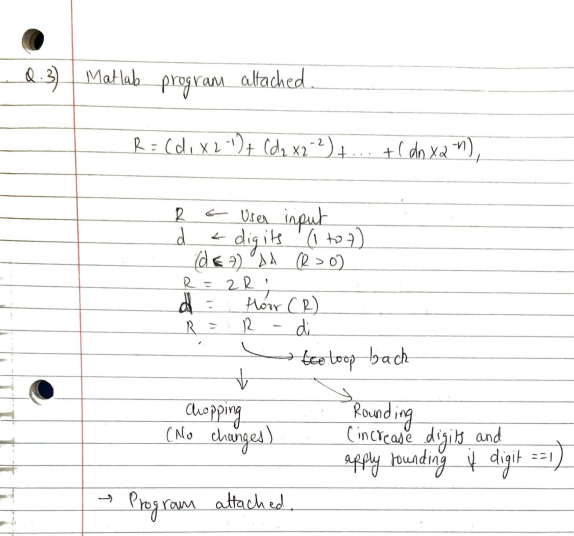 Q.3) Matlab program attached.
R = (d₁ x 2⁻¹) + (d₂ x 2⁻²) + .... + (dn x 2⁻ⁿ),
R ← User input
d ← digits (1 to 7)
(d ≤ 7) && (R > 0)
R = 2R ;
d = floor (R)
R = R - di
→ loop back
↓
Chopping Rounding
(No changes) (increase digits and
apply rounding if digit ==1)
→ Program attached.